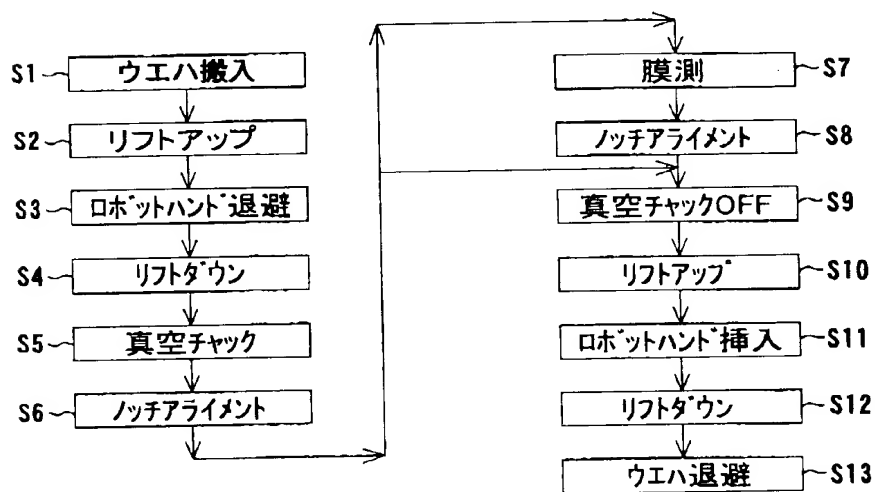 S1 ウエハ搬入
S2 リフトアップ
S3 ロボットハンド退避
S4 リフトダウン
S5 真空チャック
S6 ノッチアライメント
膜測 S7
ノッチアライメント S8
真空チャックOFF S9
リフトアップ S10
ロボットハンド挿入 S11
リフトダウン S12
ウエハ退避 S13